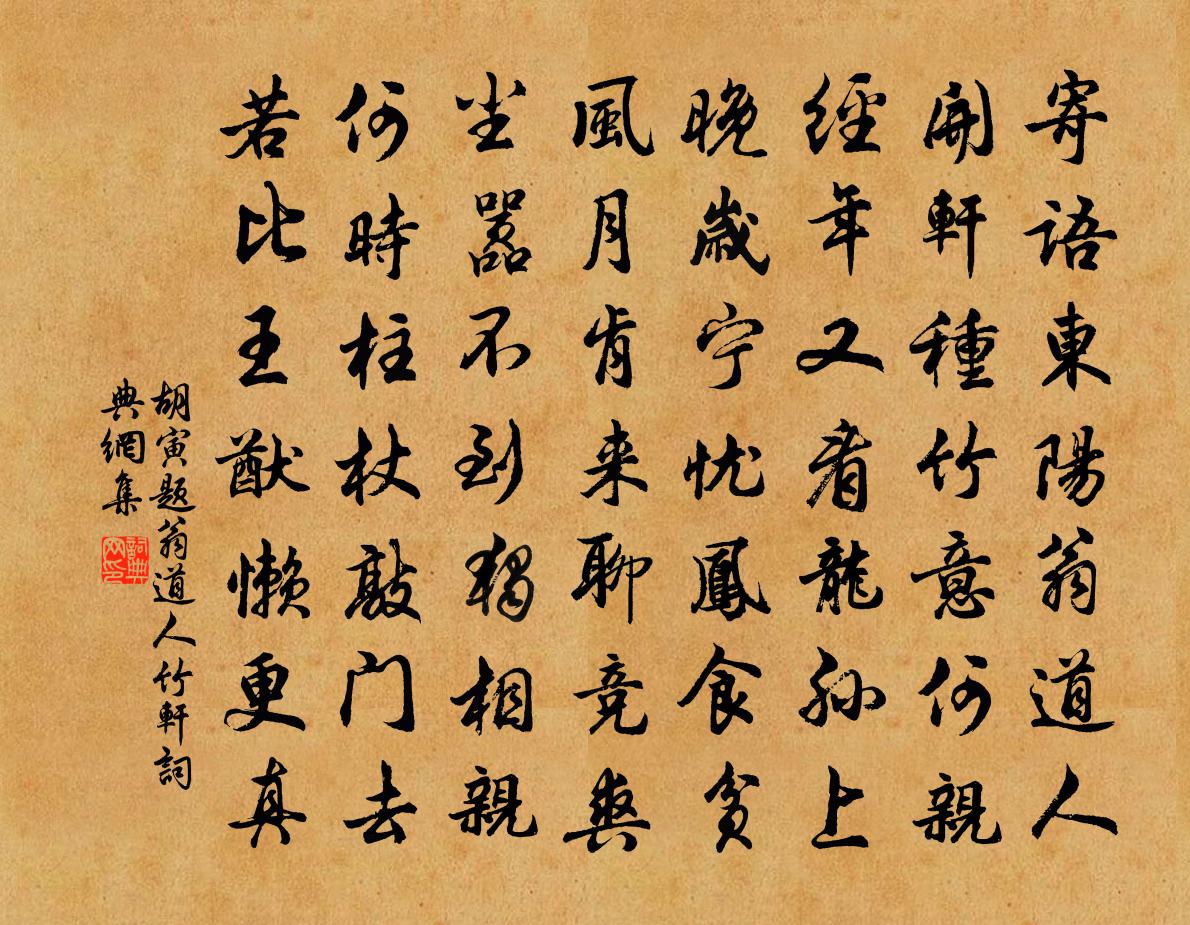 寄語東陽翁道人
開軒種竹意何親
經年又看龍孫上
晚歲宁忧鳳食貧
風月肯来聊竞爽
尘嚣不到獨相親
何時柱杖敲门去
若比王猷懒更真
胡寅题翁道人竹軒詞
典網集
詞典网印